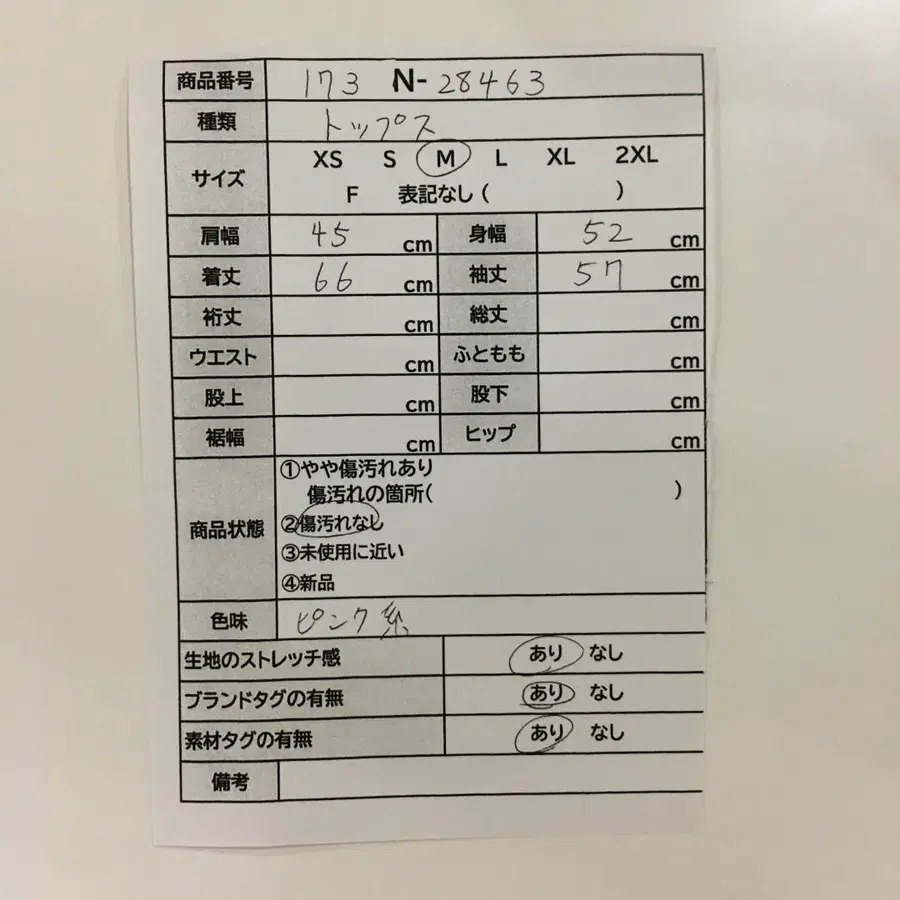 商品番号 173 N-28463
種類 トップス
サイズ XS S M L XL 2XL
F 表記なし( )
肩幅 45 cm 身幅 52 cm
着丈 66 cm 袖丈 57 cm
裄丈 cm 総丈 cm
ウエスト cm ふともも cm
股上 cm 股下 cm
裾幅 cm ヒップ cm
①やや傷汚れあり
傷汚れの箇所( )
商品状態 ②傷汚れなし
③未使用に近い
④新品
色味 ピンク系
生地のストレッチ感 あり なし
ブランドタグの有無 あり なし
素材タグの有無 あり なし
備考